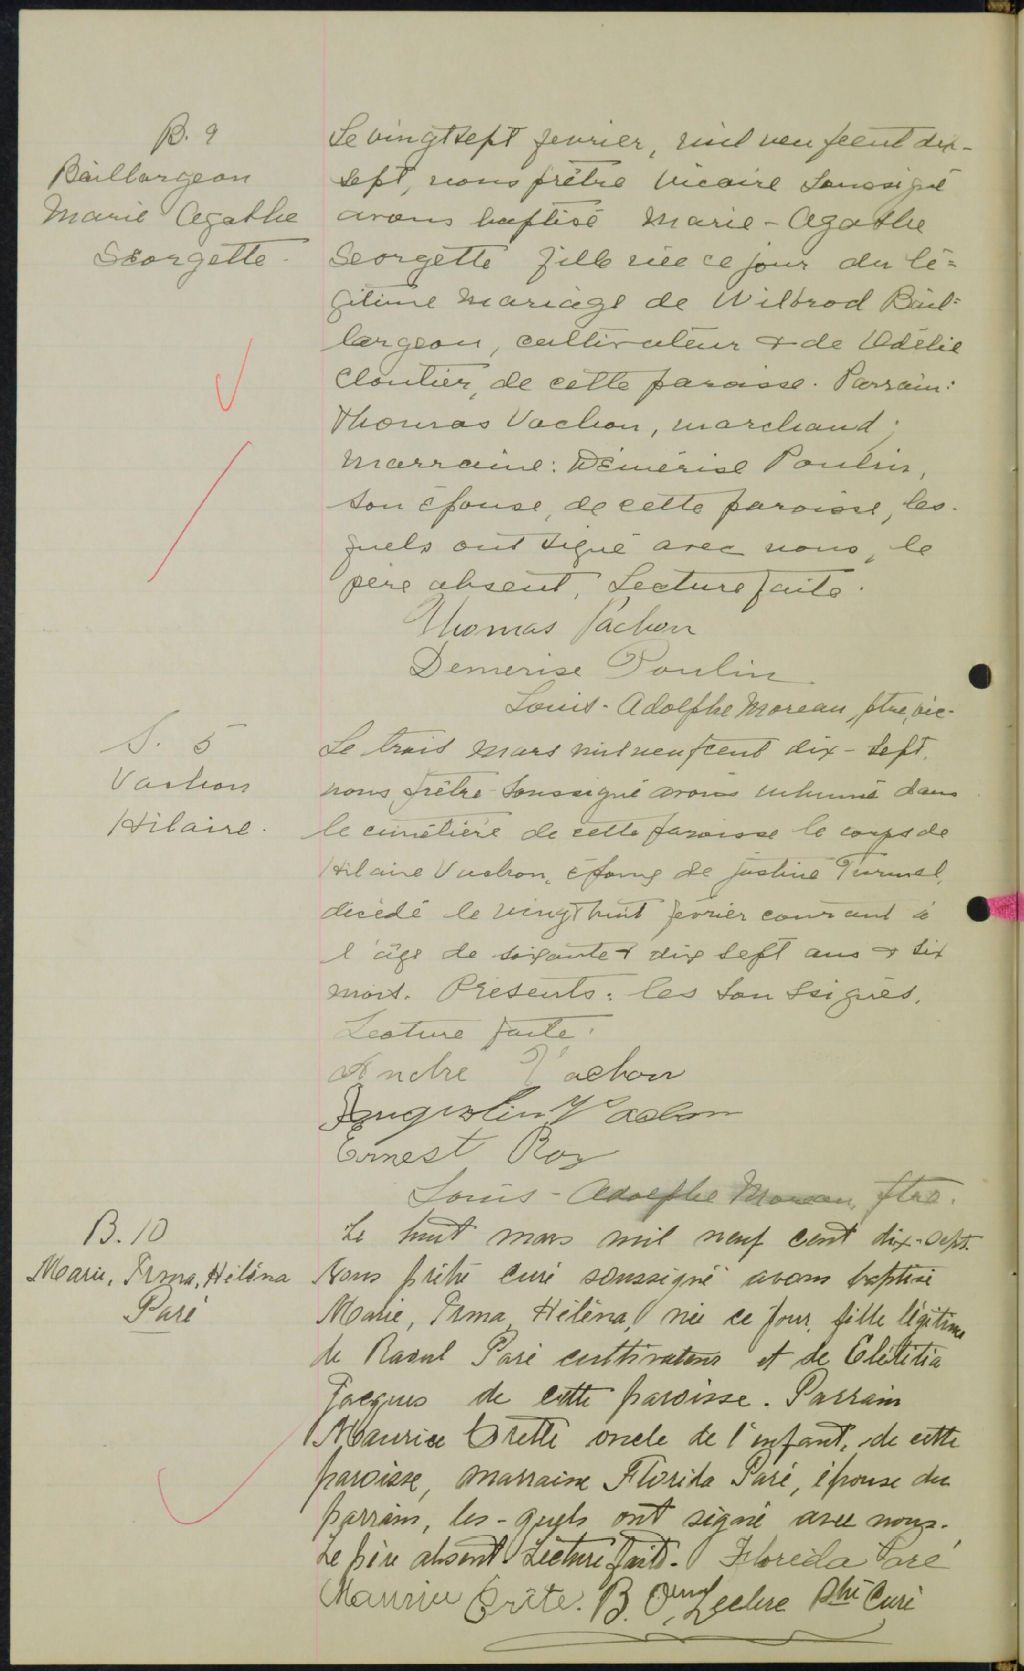 B. 9
Baillargeon
Marie Agathe
Georgette.
Le vingt sept fevrier, mil neuf cent dix-
sept, nous prêtre vicaire soussigné
avons baptisé Marie-Agathe
Georgette fille née ce jour du lé=
gitime mariage de Wilbrod Bail=
largeon, cultivateur & de Odélie
Cloutier, de cette paroisse. Parrain:
Thomas Vachon, marchand;
Marraine: Démérise Poulin,
son épouse, de cette paroisse, les-
quels ont signé avec nous, le
père absent. Lecture faite.
Thomas Vachon
Demerise Poulin
Louis-Adolphe Moreau, ptre, vic.
S. 5
Vachon
Hilaire.
Le trois mars mil neuf cent dix-sept,
nous prêtre soussigné avons inhumé dans
le cimétière de cette paroisse le corps de
Hilaire Vachon, époux de Justine Turmel,
décédé le vingt huit février courant à
l'âge de soixante & dix sept ans & six
mois. Présents: les soussignés.
Lecture faite.
Andre Vachon
Augustin Vachon
Ernest Roy
Louis-Adolphe Moreau, ptre.
B. 10
Marie, Irma, Héléna
Paré
Le huit mars mil neuf cent dix-sept.
Nous prêtre curé soussigné avons baptisé
Marie, Irma, Héléna, née ce jour, fille légitime
de Raoul Paré cultivateur et de
Jacques de cette paroisse. Parrain
Maurice Crette oncle de l'enfant, de cette
paroisse, marraine Florida Paré, épouse du
parrain, les-quels ont signé avec nous.
Le père absent. Lecture faite. Florida Paré
Maurice Crête. B. Leclerc Ptre Curé